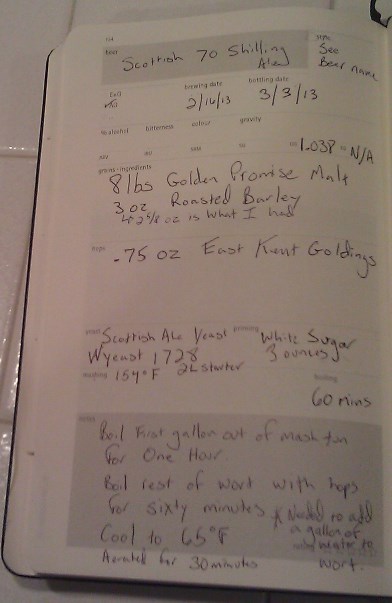 beer
Scottish 70 Shilling
Ale
style
See
Beer name
brewing date
2/16/13
bottling date
3/3/13
% alcohol bitterness colour gravity
1.038 N/A
grains + ingredients
8 lbs Golden Promise Malt
3 oz Roasted Barley
2 5/8 oz is what I had
hops
.75 oz East Kent Goldings
yeast
Scottish Ale Yeast
Wyeast 1728
2L starter
priming
White Sugar
3 ounces
mashing
154°F
boiling
60 mins
notes
Boil First gallon out of mash tun
for One Hour.
Boil rest of wort with hops
for sixty minutes
Cool to 65°F
Aerated for 30 minutes
* Needed to add
a gallon of
water to
wort.